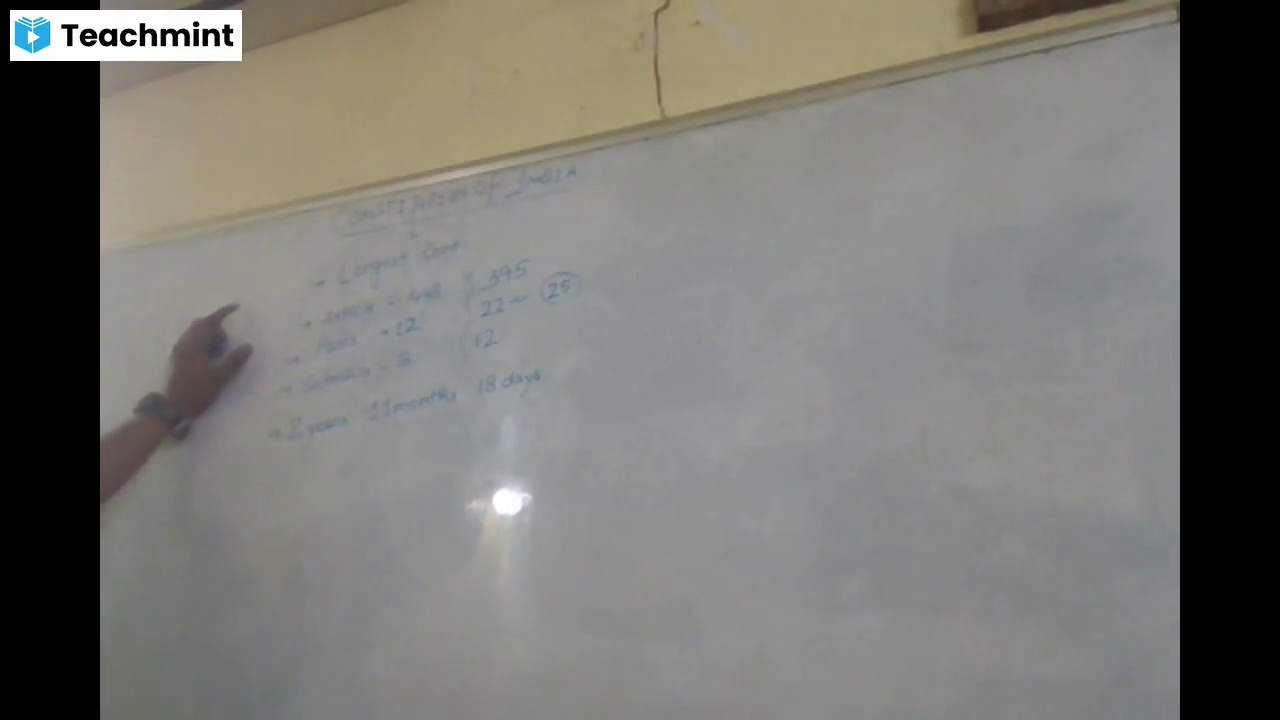 Teachmint
CONSTITUTION OF INDIA
→ Longest Con
→ Articles - 448 395
→ Parts - 12 22 25
→ Schedules - 8 12
→ 2 years 11 months 18 days